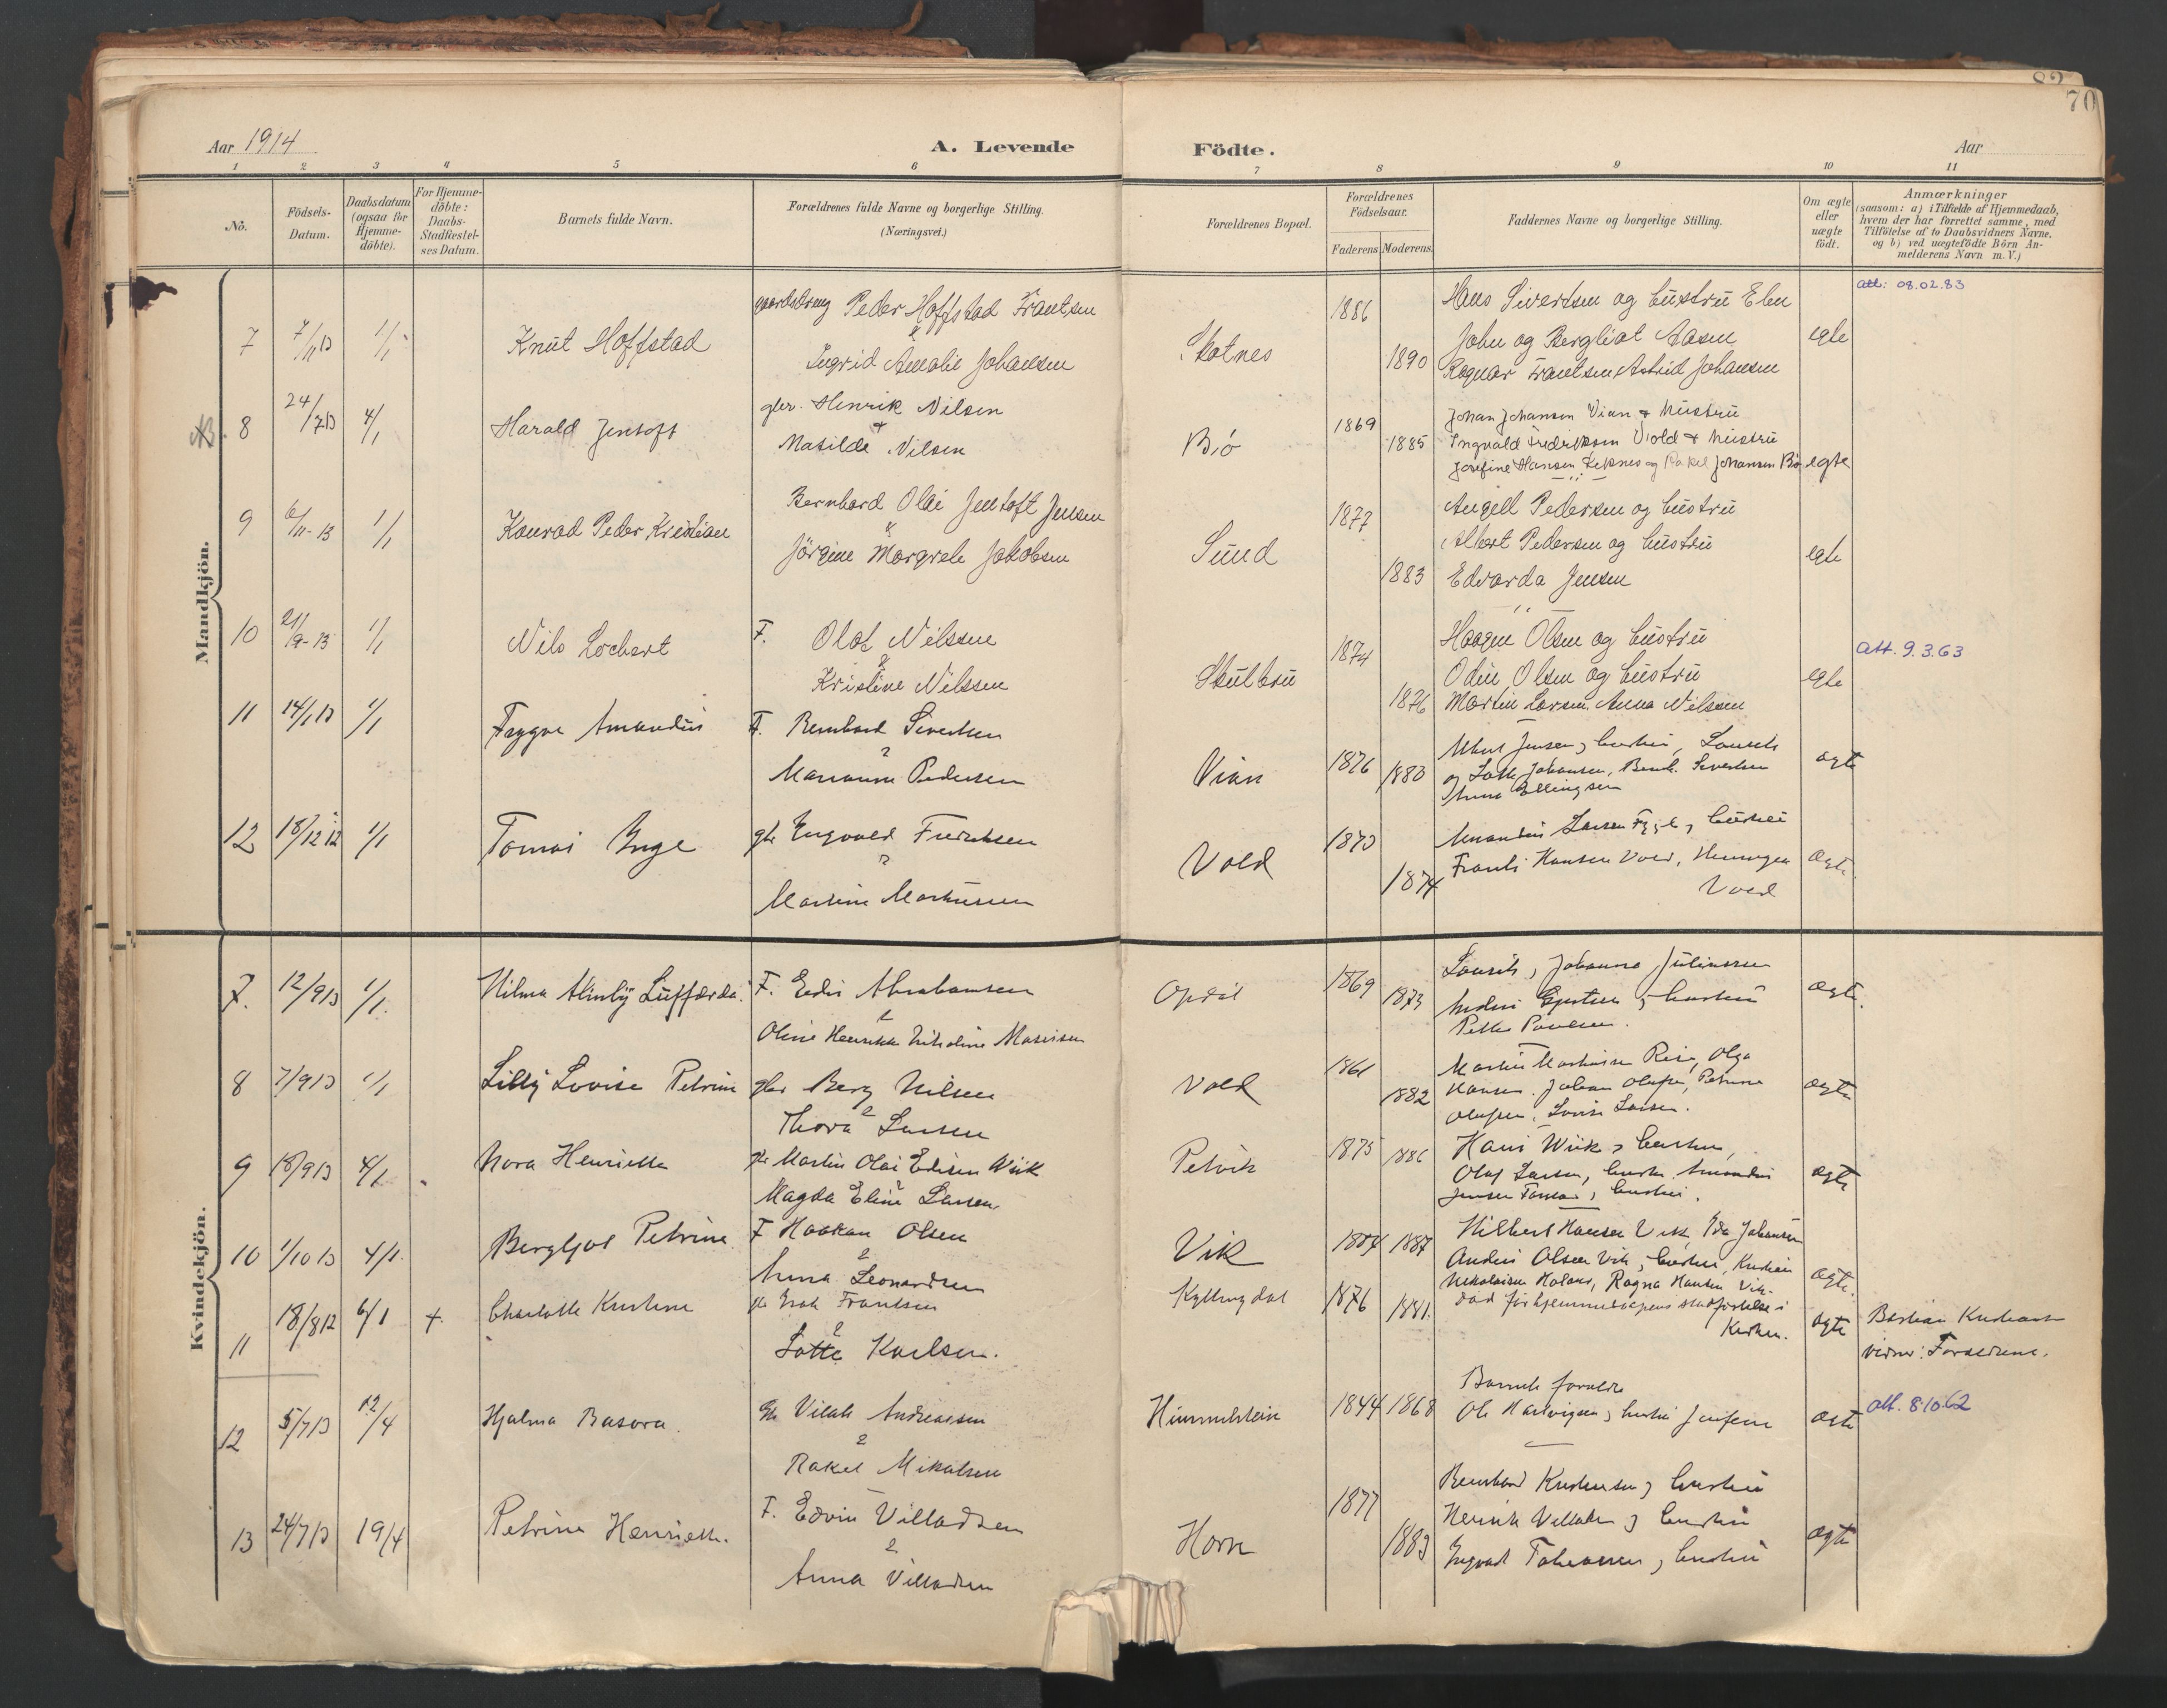 82
70
Aar 1914
A. Levende
Födte.
Aar
1 2 3 4 5 6 7 8 9 10 11
No.
Födsels-
Datum.
Daabsdatum
(ogsaa för
Hjemme-
döbte).
For Hjemme-
döbte:
Daabs-
Stadfæstel-
ses Datum.
Barnets fulde Navn.
Forældrenes fulde Navne og borgerlige Stilling.
(Næringsvei.)
Forældrenes Bopæl.
Forældrenes
Födselsaar.
Faderens Moderens
Faddernes Navne og borgerlige Stilling.
Om ægte
eller
uægte
födt.
Anmærkninger
(saasom: a) i Tilfælde af Hjemmedaab,
hvem der har forrettet samme, med
Tilföielse af to Daabsvidners Navne.
og b) ved uægtefödte Börn An-
melderens Navn m. V.)
Mandkjön.
7 7/11 13 1/1 Knut Hoffstad
Peder Hoffstad Frantsen
&
Ingrid Amalie Johansen
Skotnes 1886 1890
Hans Sivertsen og hustru Elen
John og Bergliot Aasen
Ragnar Frantsen Astrid Johansen
egte
att: 08.02.83
8 24/7 13 4/1 Harald Jentoft
gbr. Henrik Nilsen
+
Matilde Nilsen
Bö 1869 1885
Johan Johansen Vian + hustru
Ingvald Fredriksen Vold + hustru
Josefine Hansen Leknes og Rakel Johansen Bö
egte
9 6/11-13 1/1 Konrad Peder Kristian
Bernhard Olai Jentoft Jensen
&
Jörgine Margrete Jakobsen
Sund 1877 1883
Angell Pedersen og hustru
Albert Pedersen og hustru
Edvarda Jensen
egte
10 21/9-13 1/1 Nils Lockert
F. Olaf Nilssen
&
Kristine Nilssen
Skulbru 1874 1876
Haagen Olsen og hustru
Odin Olsen og hustru
Martin Larsen. Anna Nilssen
egte
Att. 9.3.63
11 14/1 13 1/1 Trygve Amandus
F. Bernhard Sivertsen
&
Marianne Pedersen
Vian 1876 1883
Jensen, hustru, Laurits
og Johansen, Sivertsen
Anna Ellingsen
ægte
12 18/12 12 1/1 Tomas Inge
gbr Engvald Fredriksen
&
Martine Martinussen
Vold 1873 1874
Amandus Larsen hustru
Frants Hansen Vold,
Vold
Ægte
Kvindekjön.
7. 12/9 13 1/1. Hilma
F. Edis Abrahamsen
&
Oline Henrikke Nikoline
Opdöl 1869 1873
Laurits, Johanna Julinssen
hustru
Petter Paulsen.
Ægte.
8 7/9 13 1/1 Lilly Lovise Petrine
gbr Berg Nilsen
&
Thora Larsen
Vold 1861 1882
Martin Olga
Hansen. Johan Olufsen, Petrine
Olufsen, Lovise Larsen.
Ægte
9 18/9 13 4/1 Nora Henriette
gbr Martin Olai Edisen Wiik
&
Magda Eline Larsen
Petvik 1875 1886
Hans Wiik, hustru,
Olaf Larsen, hustru Amandus
Jensen hustru.
Ægte
10 1/10 13 4/1. Bergljot Petrine
F Haakan Olsen
&
Anna Leonardsen
Vik 1884 1887
Hilbert Hansen Vik, Ida Johansen
Anders Olsen Vik, hustru, Kristian
Nikolaisen Holand, Ragna Hansen Vik.
Ægte.
11 18/8 12 6/1 +. Charlotte Kristine
gbr Frantsen
&
Lotte Karlsen.
Kyllingdal 1876 1881.
stadfæstelse i
Kirken.
Ægte
Bastian
vidner: Foreldrene.
12 5/7 13 12/4 Hjalma Basora.
gbr Andreassen
&
Rakel Mikalsen
Himmelstein 1844 1868
Barnets foreldre
Ole Hartvigsen, hustru
ægte
Att. 8.10.62
13 24/7 13 19/4 Petrine Henriette.
F. Edvin Villadsen
&
Anna Villadsen
Horn 1877 1883
Bernhard Kristensen, hustru
Henrik hustru
Ingvart hustru
Ægte